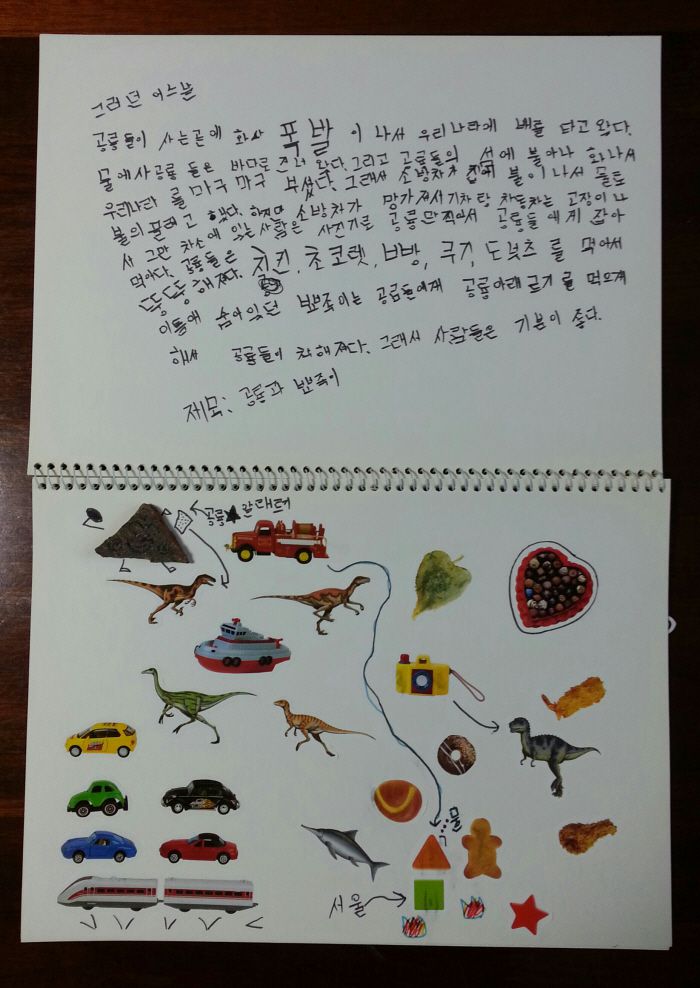 그러던 어느날
공룡들이 사는곳에 화산 폭발 이 나서 우리나라에 배를 타고 왔다.
물에사공룡 들은 바다로 건너 왔다. 그리고 공룡들의 에 불이나 화나서
우리나라 를 마구 마구 부셨다. 그래서 소방차가 불이 나서 물로
불의 끌려고 했다. 하지만 소방차가 망가져서 기차랑 자동차는 고장이 나
서 그만 차소에 있는 사람은 사진기로 공룡만 찍어서 공룡들 에게 잡아
먹히다. 공룡들은 치킨, 초코렛, 빵, 쿠키, 도넛츠 를 먹어서
뚱뚱 해졌다.
이틈에 숨어있던 뾰족이는 공룡들에게 공룡아래 를 먹으게
해서 공룡들이 착해졌다. 그래서 사람들은 기분이 좋다.
제목: 공룡과 뾰족이
공룡
물
서울